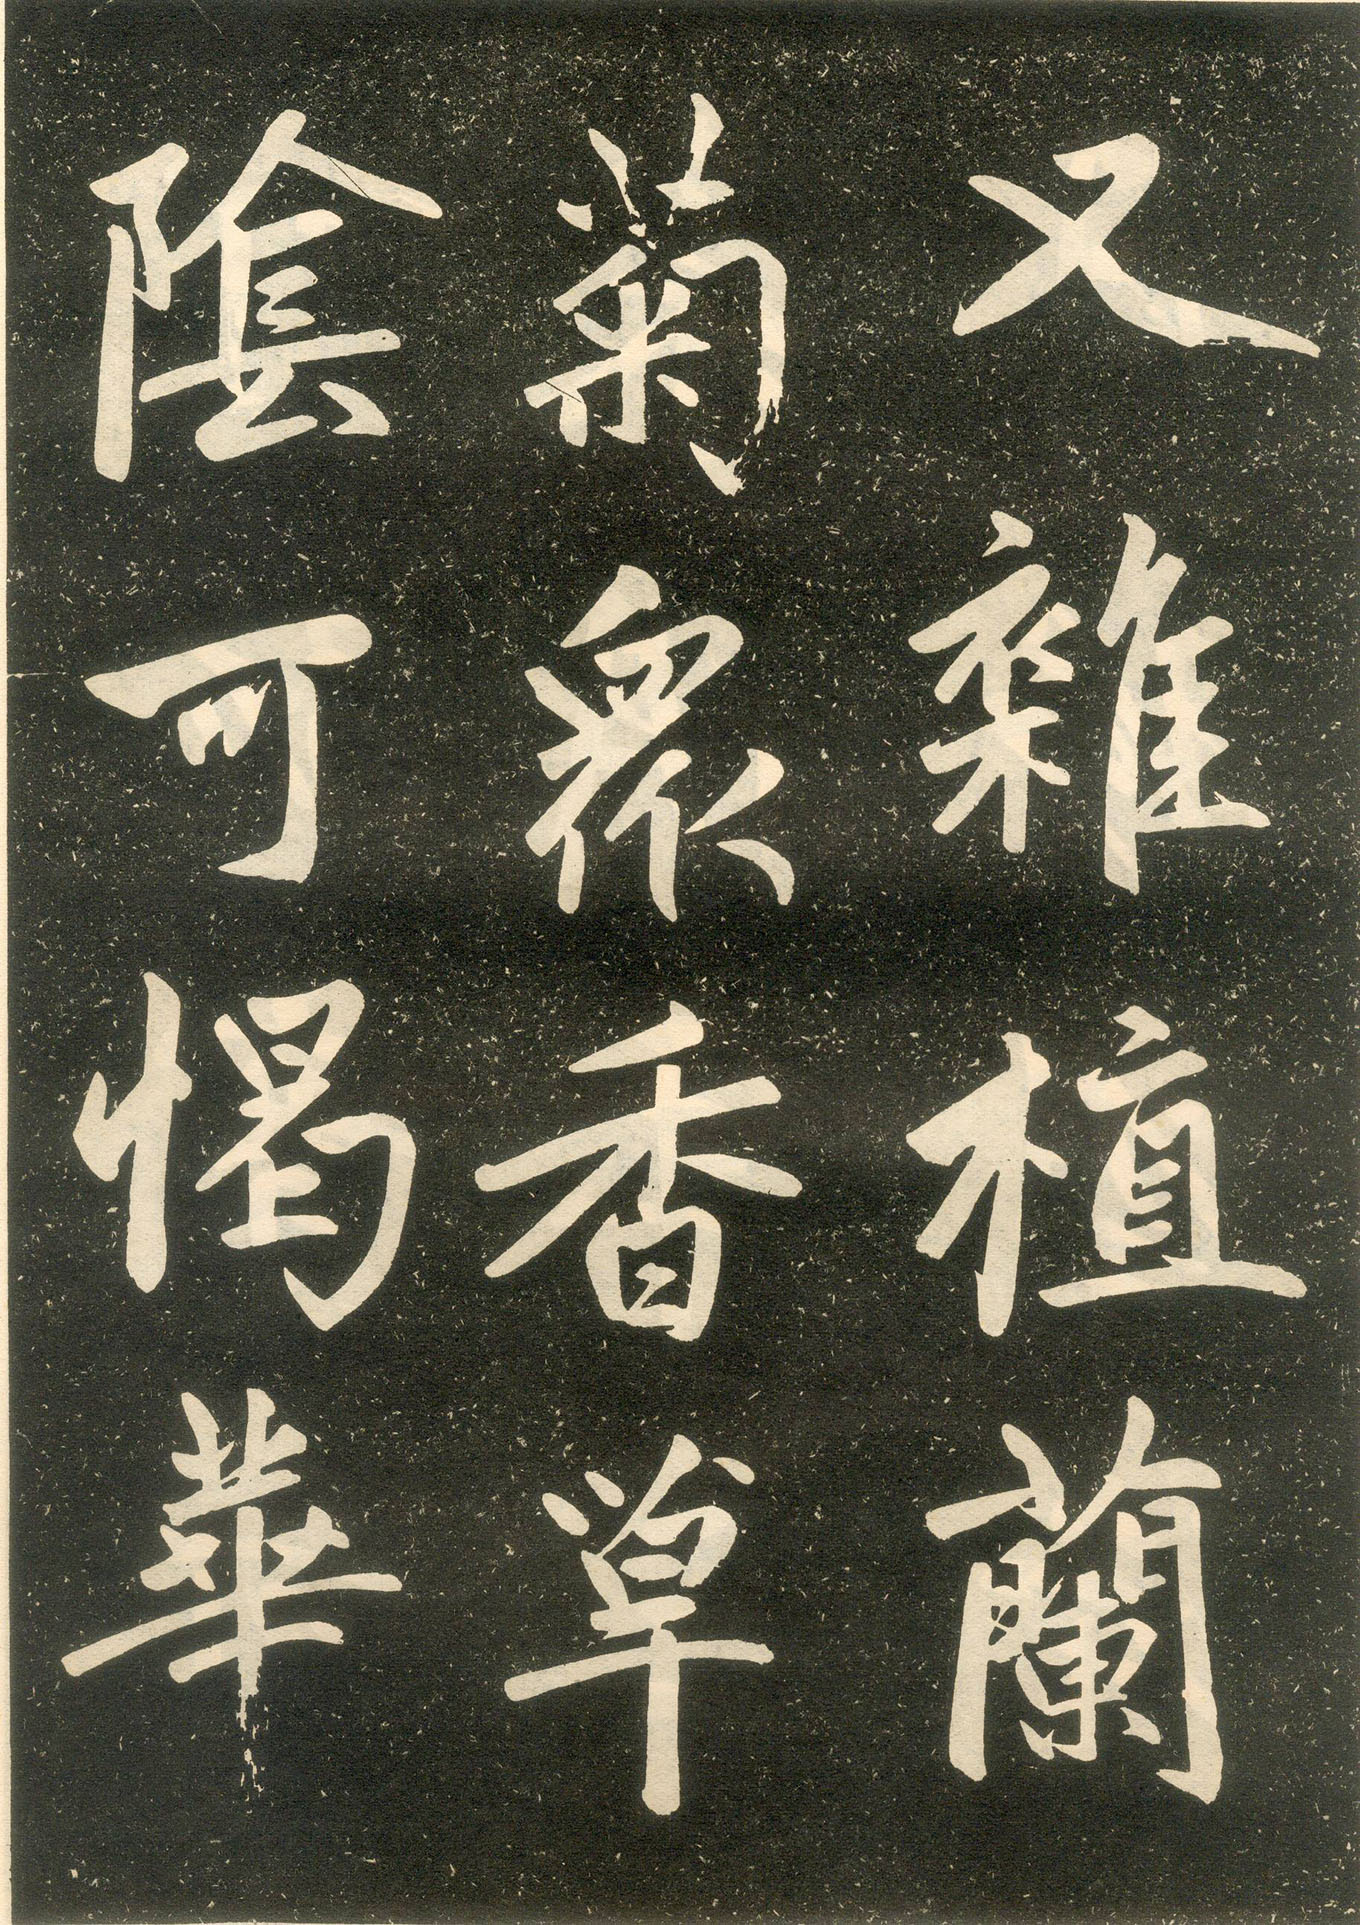 又雜植蘭
菊衆香草
陰可憩華